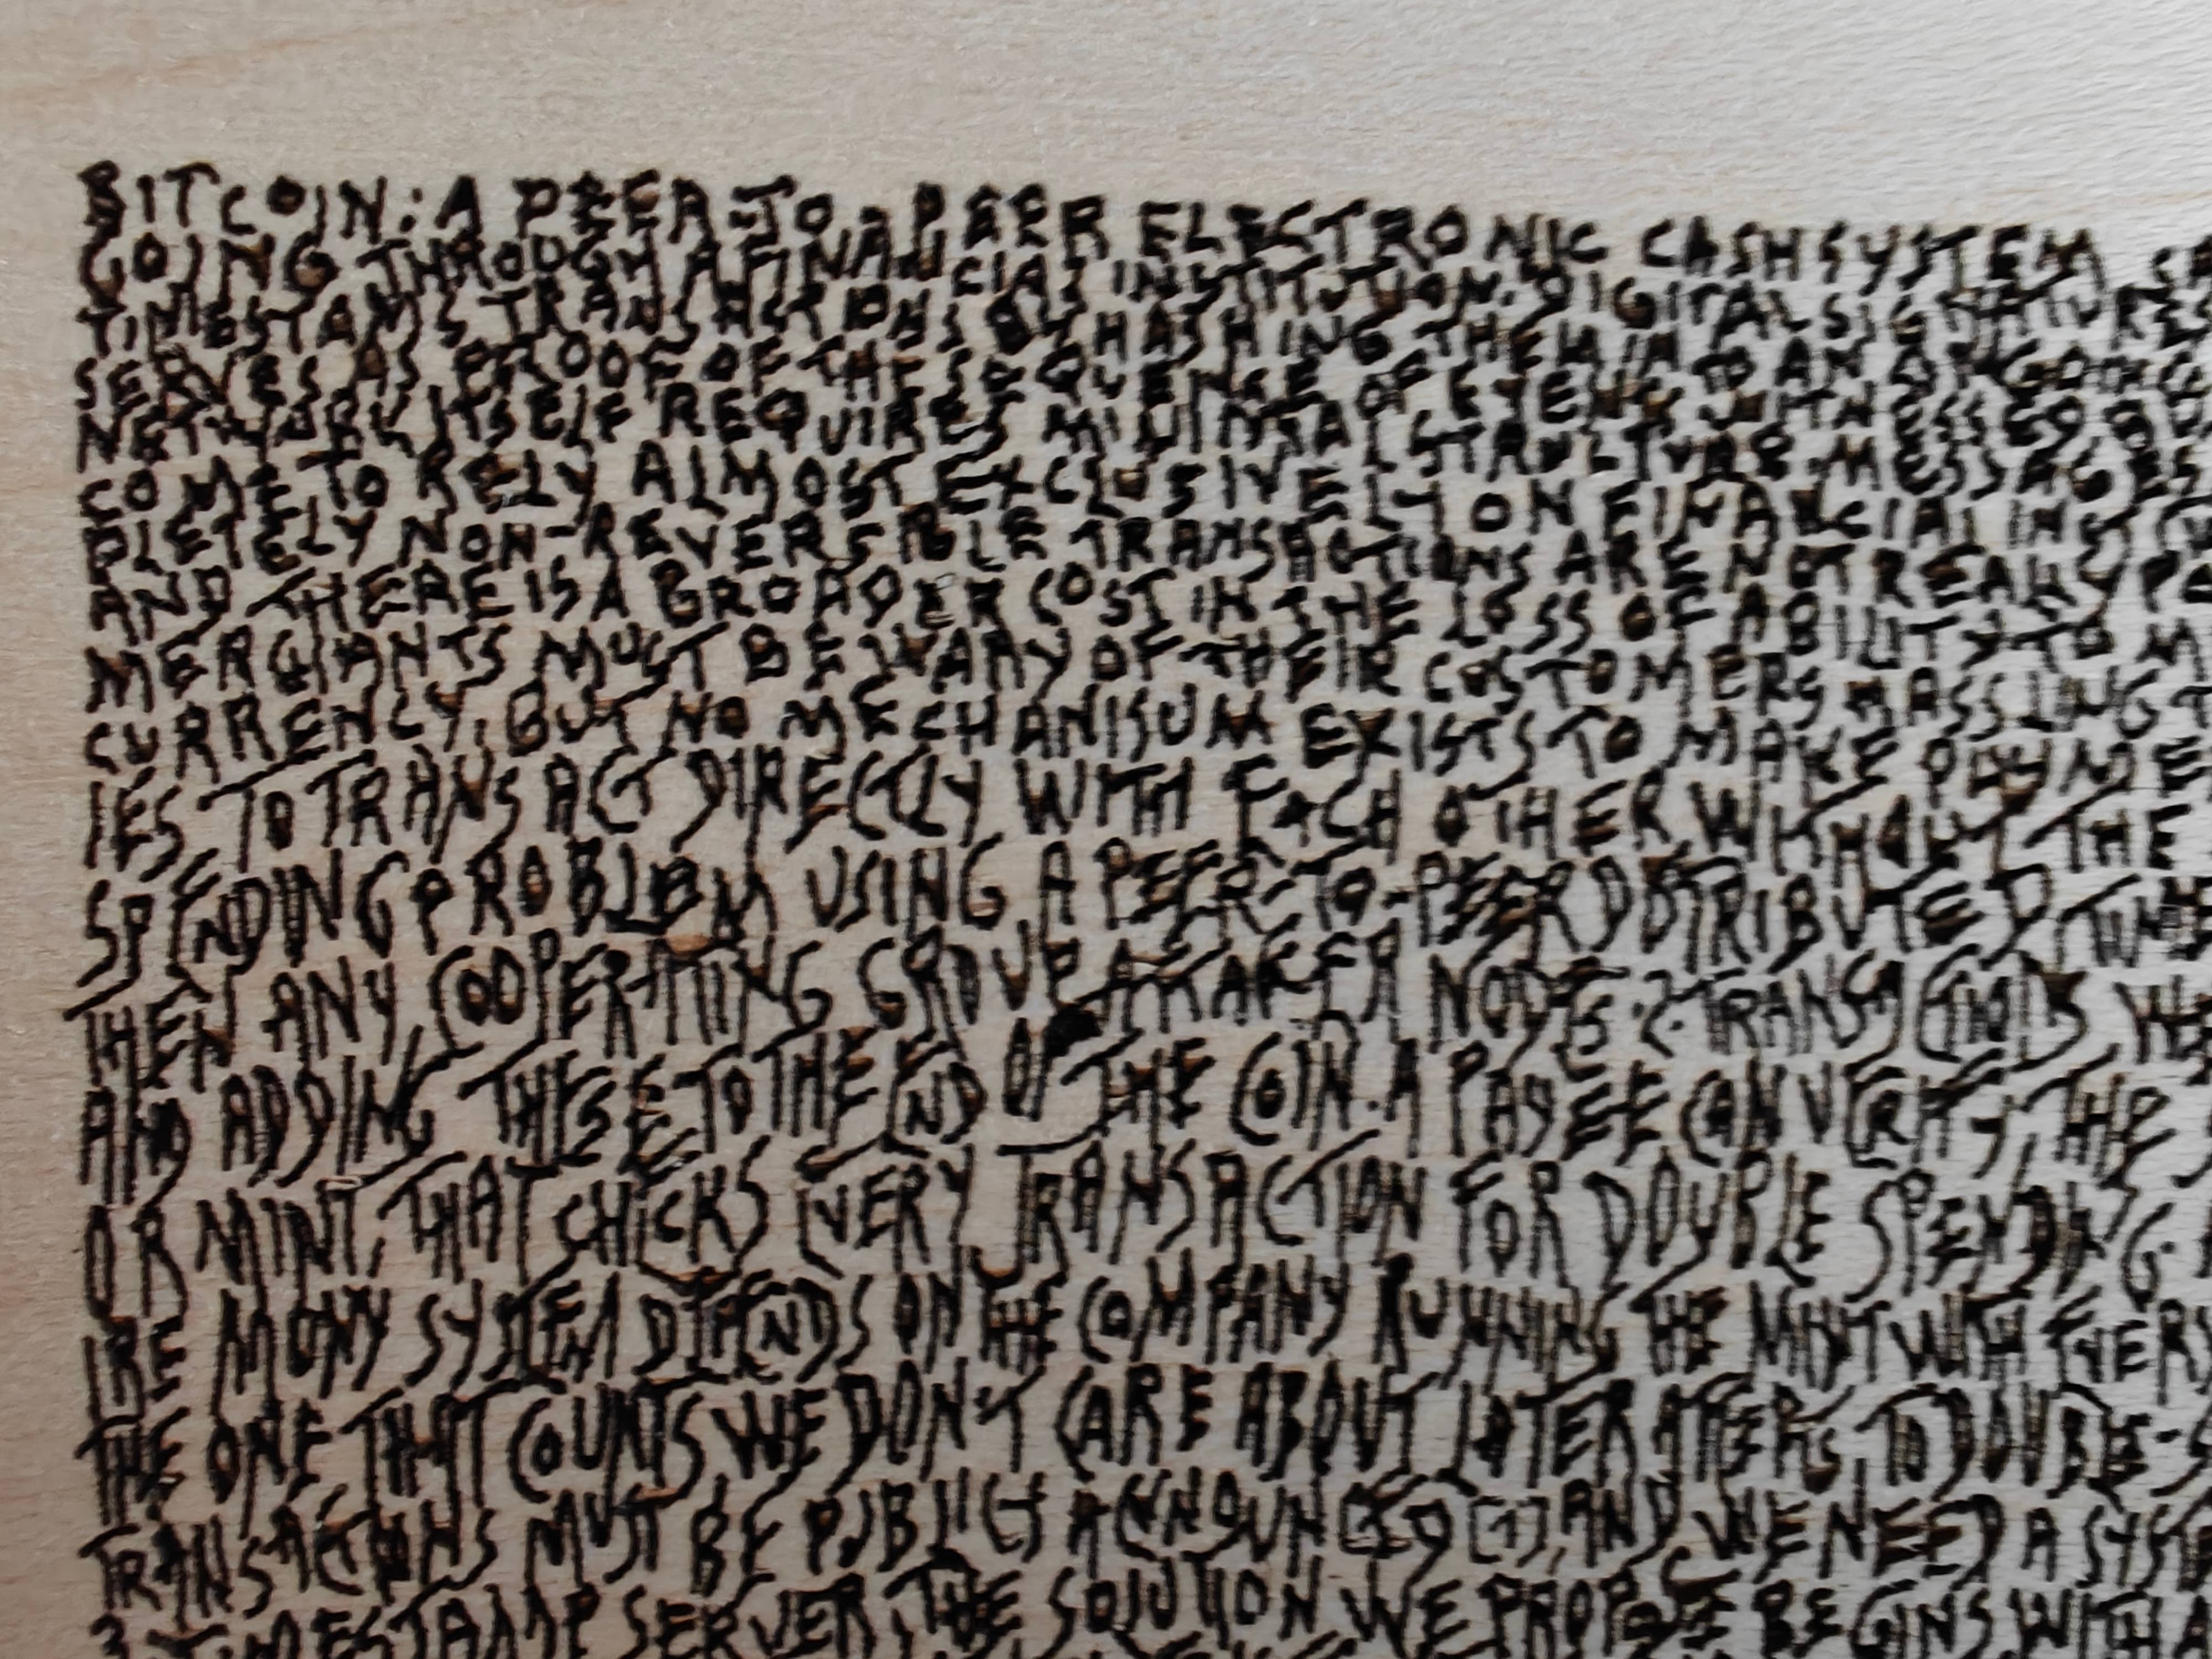 BITCOIN: A PEER-TO-PEER ELECTRONIC CASH SYSTEM
GOING THROUGH A FINANCIAL INSTITUTION. DIGITAL SIGNATURES
TIMESTAMPS TRANSACTIONS BY HASHING THEM INTO AN ONGOING
SERVES AS PROOF OF THE SEQUENSE OF EVENTS WITNESSED
NETWORK ITSELF REQUIRES MINIMAL STRUCTURE. MESSAGES
COME TO RELY ALMOST EXCLUSIVELY ON FINANCIAL
PLETELY NON-REVERSIBLE TRANSACTIONS ARE NOT REALLY
AND THERE IS A BROADER COST IN THE LOSS OF ABILITY TO
MERCHANTS MUST BE WARY OF THEIR CUSTOMERS
CURRENCY, BUT NO MECHANISUM EXISTS TO MAKE
IES TO TRANSACT DIRECTLY WITH EACH OTHER THE
SPENDING PROBLEM USING A PEER-TO-PEER DISTRIBUTED
THEN ANY COOPERTING GROUP NODES. 2. TRANSACTIONS
AND ADDING THESE TO THE END OF THE COIN. A PAYEE CAN VERIFY THE
OR MINT, THAT CHICKS EVERY TRANSACTION FOR DOUBLE SPENDING.
IRE MONY SYSTEM ON THE COMPANY RUNNING THE MINT WITH EVERY
THE ONE THAT COUNTS WE DON'T CARE ABOUT LATER TO DOUBLE-S
TRANSACTIONS MUST BE [1], AND WE NEED A
3. TIMESTAMP SERVER, THE SOLUTION WE PROPOSE BEGINS WITH A